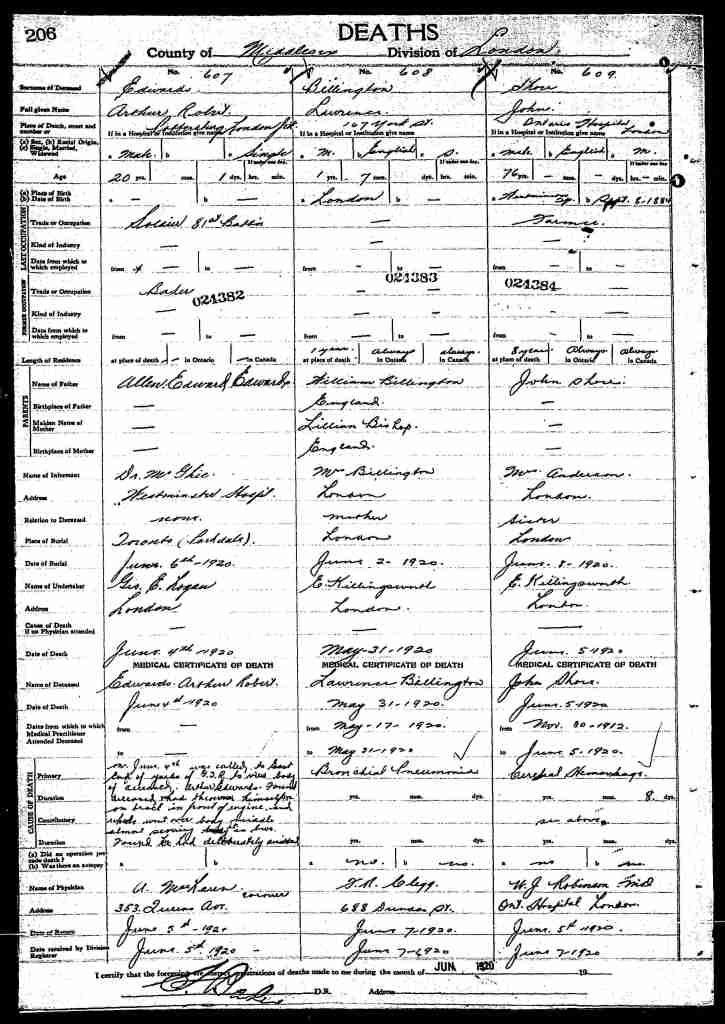 206
DEATHS
County of Middlesex Division of London.
No. 607 No. 608 No. 609
Surname of Deceased Edwards Billington Shore
Full given Name Arthur Robert. Lawrence. John.
Place of Death, street and number or London Jct. 167 York St. Ontario Hospital London
If in a Hospital or Institution give name If in a Hospital or Institution give name If in a Hospital or Institution give name
(a) Sex, (b) Racial Origin, (c) Single, Married, Widowed a male. b — c Single a m. b English c s. a male b English c m.
Age 20 yrs. — mos. 1 dys. hrs. min. 1 yrs. 7 mos. — dys. hrs. min. 76 yrs. — mos. — dys. hrs. — min.
(a) Place of Birth (b) Date of Birth a — b — a London b — a b Sept. 8-1884
LAST OCCUPATION
Trade or Occupation Soldier 81st Battn — Farmer
Kind of Industry — — —
Date from which to which employed from to — from — to — from — to —
024382 024383 024384
FORMER OCCUPATION
Trade or Occupation — —
Kind of Industry — — —
Date from which to which employed from — to — from — to — from — to —
Length of Residence at place of death — in Ontario — in Canada — 1 year. at place of death always in Ontario always. in Canada 8 years at place of death always in Ontario always in Canada
PARENTS
Name of Father Allen Edward Edwards William Billington John Shore.
Birthplace of Father — England. —
Maiden Name of Mother — Lillian Bishop. —
Birthplace of Mother — England. —
Name of Informant Dr. McGhie. Mrs Billington Mrs Anderson.
Address Westminster Hospt. London London.
Relation to Deceased none. mother sister
Place of Burial Toronto (Parkdale). London London
Date of Burial June. 6th-1920. June 2-1920. June. 8-1920.
Name of Undertaker Geo. E. Logan E. Killingsworth E. Killingsworth
Address London London. London.
Cause of Death if no Physician attended — — —
Date of Death June. 4th-1920 May-31-1920 June. 5-1920
MEDICAL CERTIFICATE OF DEATH MEDICAL CERTIFICATE OF DEATH MEDICAL CERTIFICATE OF DEATH
Name of Deceased Edwards. Arthur Robert. Lawrence Billington John Shore.
Date of Death June 4th 1920 May 31-1920. June. 5-1920
Dates from which to which Medical Practitioner Attended Deceased from — from May-17-1920. from Nov. 30-1912.
to — to May 31-1920 to June 5-1920.
CAUSE OF DEATH
Primary on June 4th was called to East Bronchial Pneumonia Cerebral Hemorrhage.
end of yards of G.T.R. to view body
Duration of accused, Arthur Edwards. Found yrs. mos. dys. yrs. mos. 8. dys.
deceased had thrown himself
Contributory on track in front of engine, and — see above
wheels went over body middle
almost severing body in two.
Duration Found he had deliberately suicided yrs. mos. dys. yrs. mos. dys.
(a) Did an operation precede death? (b) Was there an autopsy a b a no. b no. a no b no.
Name of Physician A. MacLaren coroner F.R. Clegg. W.J. Robinson
Address 353. Queens Ave. 688 Dundas St. Ont. Hospital London.
Date of Return June 5th-1920 June 7-1920. June. 5th 1920.
Date received by Division Registrar June. 5th. 1920 - June 7-1920 June 7-1920
I certify that the foregoing are correct registrations of deaths made to me during the month of JUN 1920 19
D.R. Address